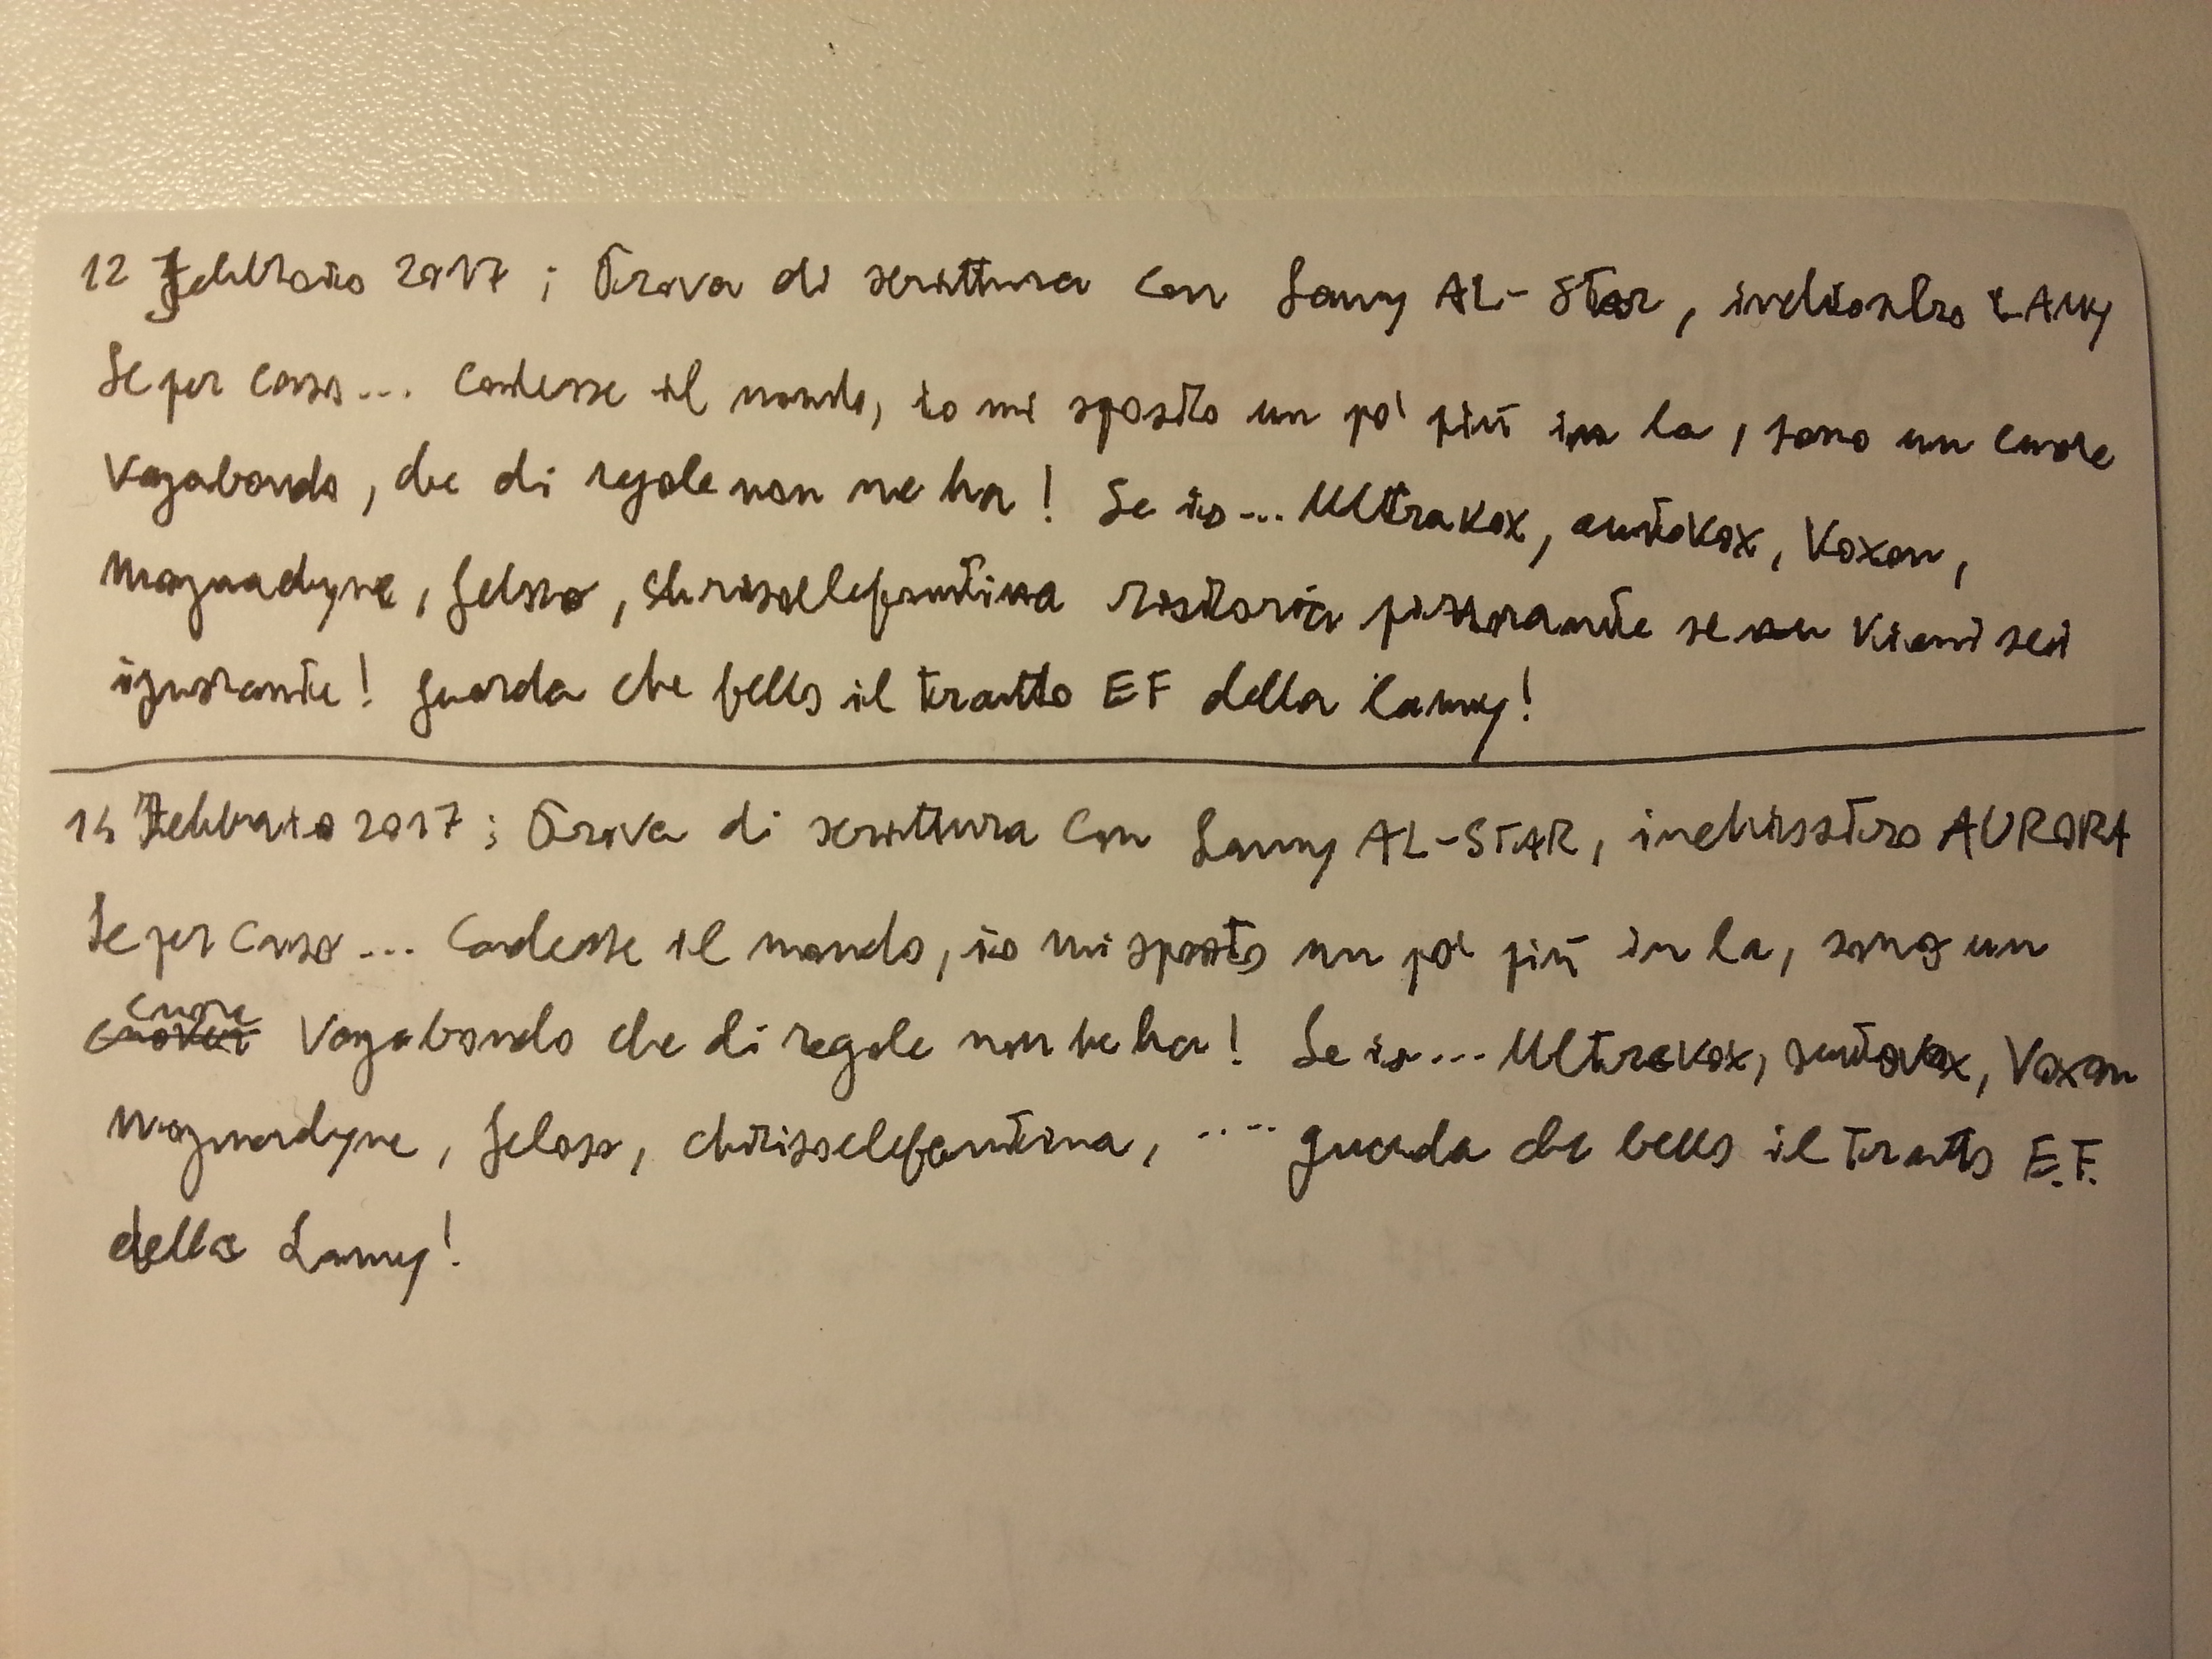 12 Febbraio 2017 ; Prova di scrittura con Lamy AL-Star, inchiostro LAMY
Se per caso... cadesse il mondo, io mi sposto un po' più in la, sono un cuore
Vagabondo, che di regole non ne ha! Se io... Ultravox, autovox, Voxon,
Magnadyne, Geloso, ristoria se non vieni sei
ignorante! guarda che bello il tratto EF della lamy!
14 Febbraio 2017 ; Prova di scrittura con Lamy AL-STAR, inchiostro AURORA
Se per caso... Cadesse il mondo, io mi sposto un po' più in la, sono un
cuore
Vagabondo che di regole non ne ha! Se io... Ultravox, autovox, Voxon
Magnadyne, Geloso, chrisoelefantina, .... guarda che bello il tratto E.F.
della Lamy!